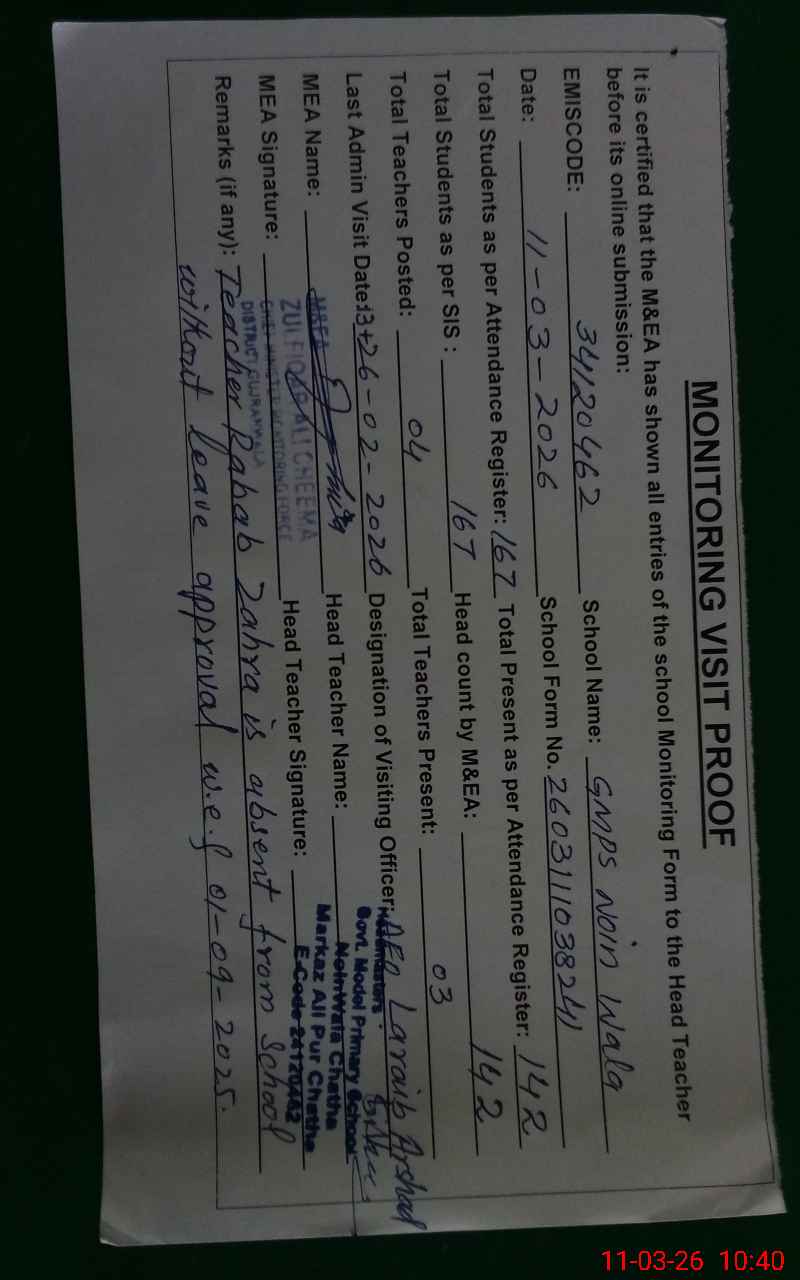 MONITORING VISIT PROOF
It is certified that the M&EA has shown all entries of the school Monitoring Form to the Head Teacher
before its online submission:
EMISCODE: 34120462 School Name: GMPS Noin Wala
Date: 11-03-2026 School Form No. 260311038241
Total Students as per Attendance Register: 167 Total Present as per Attendance Register: 142
Total Students as per SIS : 167 Head count by M&EA: 142
Total Teachers Posted: 04 Total Teachers Present: 03
Last Admin Visit Date: 13+26-02-2026 Designation of Visiting Officer: AEO Laraib Arshad
MEA Name: Head Teacher Name:
MEA Signature: Head Teacher Signature:
M&EA
ZULFIQAR ALI CHEEMA
CHIEF MINISTER MONITORING FORCE
DISTRICT GUJRANWALA
Headmasters
Govt. Model Primary School
NoinWala Chatha
Markaz Ali Pur Chatha
E-Code 24120462
Remarks (if any): Teacher Rabab Zahra is absent from School
without leave approval w.e.f 01-09-2025.
11-03-26 10:40